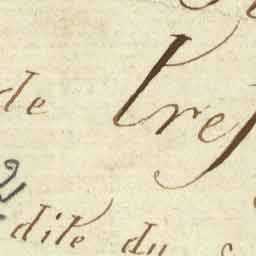 de Tres
dite du